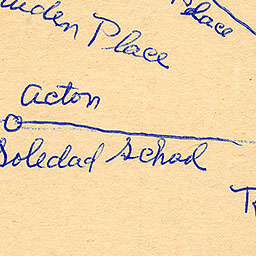 Place
Place
Acton
Soledad School